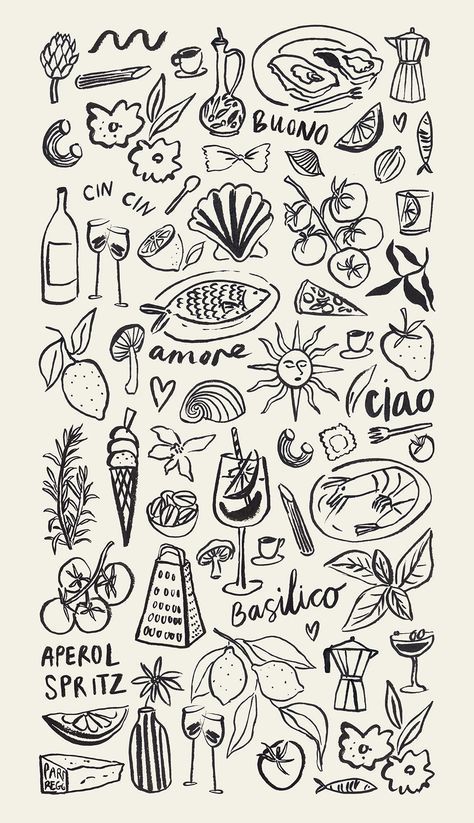 BUONO
CIN CIN
amore
ciao
Basilico
APEROL
SPRITZ
PAR
REGG